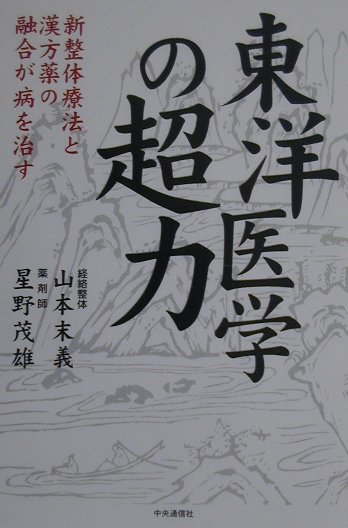 東洋医学
の超力
新整体療法と
漢方薬の
融合が病を治す
経絡整体
山本末義
薬剤師
星野茂雄
中央通信社